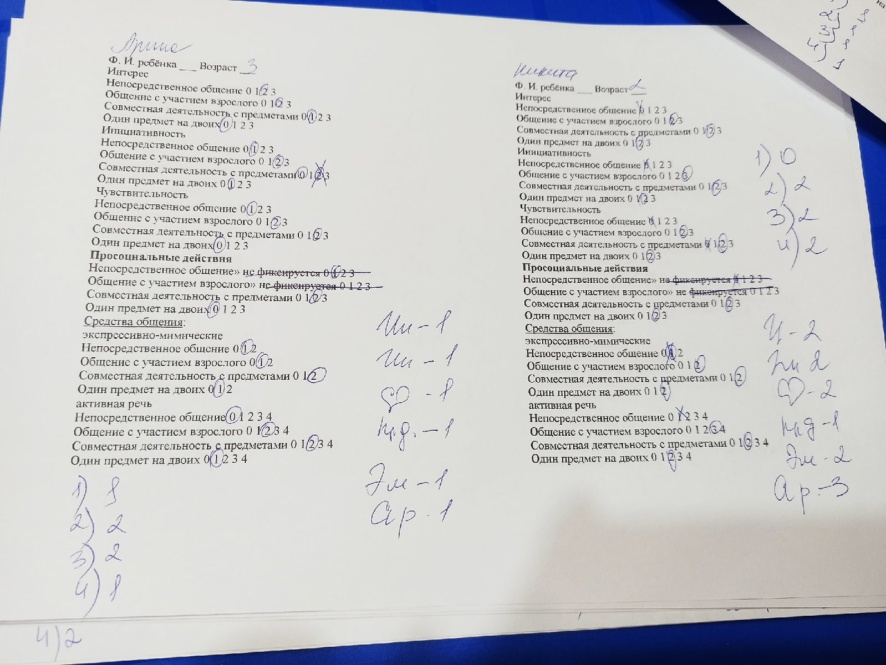 Арина
Ф. И. ребёнка ___ Возраст 3
Интерес
Непосредственное общение 0 1 2 3
Общение с участием взрослого 0 1 2 3
Совместная деятельность с предметами 0 1 2 3
Один предмет на двоих 0 1 2 3
Инициативность
Непосредственное общение 0 1 2 3
Общение с участием взрослого 0 1 2 3
Совместная деятельность с предметами 0 1 2 3
Один предмет на двоих 0 1 2 3
Чувствительность
Непосредственное общение 0 1 2 3
Общение с участием взрослого 0 1 2 3
Совместная деятельность с предметами 0 1 2 3
Один предмет на двоих 0 1 2 3
Просоциальные действия
Непосредственное общение» не фиксируется 0 1 2 3
Общение с участием взрослого» не фиксируется 0 1 2 3
Совместная деятельность с предметами 0 1 2 3
Один предмет на двоих 0 1 2 3
Средства общения:
экспрессивно-мимические
Непосредственное общение 0 1 2
Общение с участием взрослого 0 1 2
Совместная деятельность с предметами 0 1 2
Один предмет на двоих 0 1 2
активная речь
Непосредственное общение 0 1 2 3 4
Общение с участием взрослого 0 1 2 3 4
Совместная деятельность с предметами 0 1 2 3 4
Один предмет на двоих 0 1 2 3 4
1) 1
2) 2
3) 2
4) 1
Ин - 1
Ин - 1
- 1
п.д. - 1
Эм - 1
Ар - 1
4) 2
Никита
Ф. И. ребёнка ___ Возраст 2
Интерес
Непосредственное общение 0 1 2 3
Общение с участием взрослого 0 1 2 3
Совместная деятельность с предметами 0 1 2 3
Один предмет на двоих 0 1 2 3
Инициативность
Непосредственное общение 0 1 2 3
Общение с участием взрослого 0 1 2 3
Совместная деятельность с предметами 0 1 2 3
Один предмет на двоих 0 1 2 3
Чувствительность
Непосредственное общение 0 1 2 3
Общение с участием взрослого 0 1 2 3
Совместная деятельность с предметами 0 1 2 3
Один предмет на двоих 0 1 2 3
Просоциальные действия
Непосредственное общение» не фиксируется 0 1 2 3
Общение с участием взрослого» не фиксируется 0 1 2 3
Совместная деятельность с предметами 0 1 2 3
Один предмет на двоих 0 1 2 3
Средства общения:
экспрессивно-мимические
Непосредственное общение 0 1 2
Общение с участием взрослого 0 1 2
Совместная деятельность с предметами 0 1 2
Один предмет на двоих 0 1 2
активная речь
Непосредственное общение 0 1 2 3 4
Общение с участием взрослого 0 1 2 3 4
Совместная деятельность с предметами 0 1 2 3 4
Один предмет на двоих 0 1 2 3 4
1) 0
2) 2
3) 2
4) 2
И - 2
Ин 2
- 2
п.д - 1
Эм - 2
Ар - 3